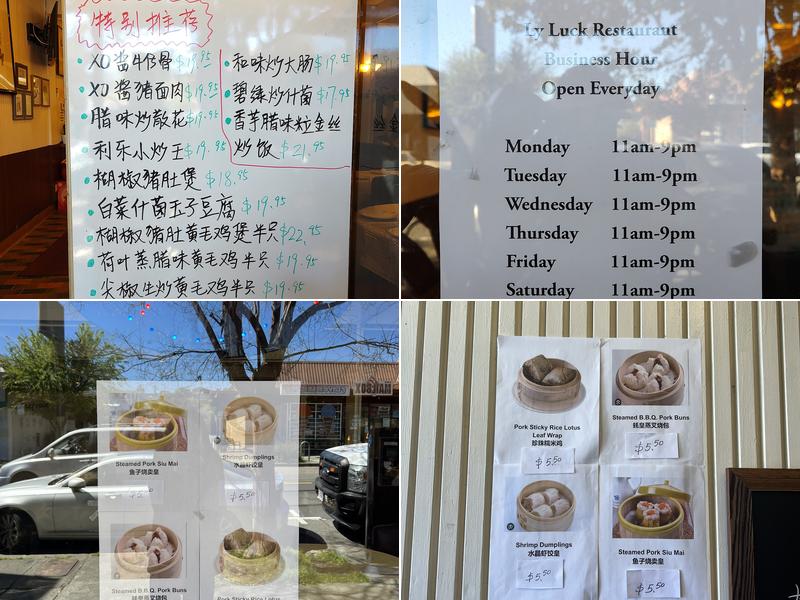 特别推荐
XO酱牛仔骨 $19.95
XO酱猪面肉 $19.95
腊味炒散花 $19.95
利乐小炒王 $19.95
胡椒猪肚煲 $18.95
白菜什菌玉子豆腐 $19.95
胡椒猪肚黄毛鸡煲半只 $22.95
荷叶蒸腊味黄毛鸡半只 $19.95
尖椒生炒黄毛鸡半只 $19.95
和味炒大肠 $19.95
碧绿炒什菌 $17.95
香芋腊味粒金丝
炒饭 $21.95
Ly Luck Restaurant
Business Hour
Open Everyday
Monday 11am-9pm
Tuesday 11am-9pm
Wednesday 11am-9pm
Thursday 11am-9pm
Friday 11am-9pm
Saturday 11am-9pm
Steamed Pork Siu Mai
鱼子烧卖皇
$5.50
Shrimp Dumplings
水晶虾饺皇
$5.50
Steamed B.B.Q. Pork Buns
蚝皇蒸叉烧包
Pork Sticky Rice Lotus
MAILBOX
Pork Sticky Rice Lotus
Leaf Wrap
珍珠糯米鸡
$5.50
Steamed B.B.Q. Pork Buns
蚝皇蒸叉烧包
$5.50
Shrimp Dumplings
水晶虾饺皇
$5.50
Steamed Pork Siu Mai
鱼子烧卖皇
$5.50